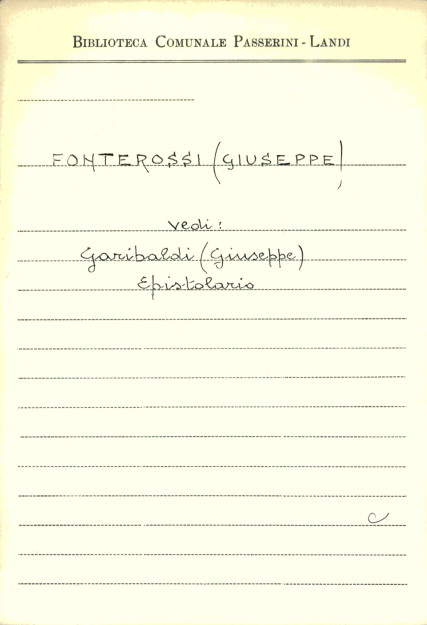 BIBLIOTECA COMUNALE PASSERINI - LANDI
FONTEROSSI (GIUSEPPE)
vedi:
Garibaldi (Giuseppe)
Epistolario
C